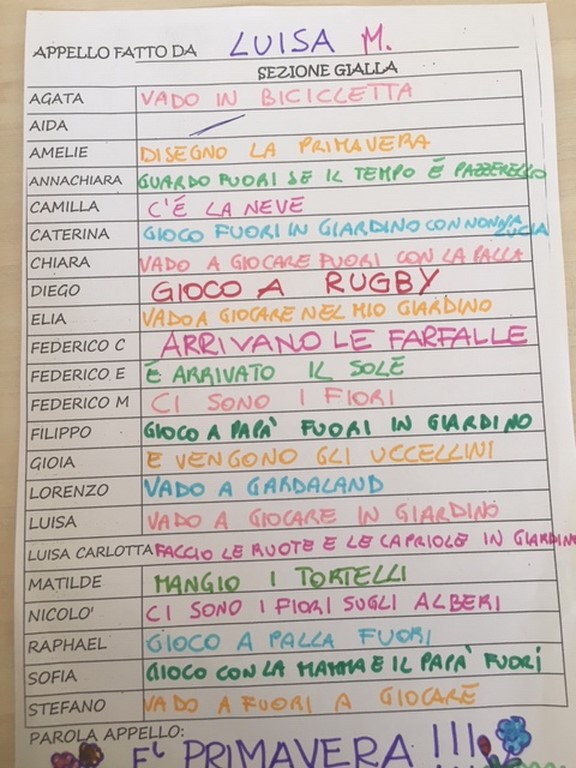 APPELLO FATTO DA LUISA M.
SEZIONE GIALLA
AGATA VADO IN BICICLETTA
AIDA
AMELIE DISEGNO LA PRIMAVERA
ANNACHIARA GUARDO FUORI SE IL TEMPO È PAZZERELLO
CAMILLA C'È LA NEVE
CATERINA GIOCO FUORI IN GIARDINO CON NONNA LUCIA
CHIARA VADO A GIOCARE FUORI CON LA PALLA
DIEGO GIOCO A RUGBY
ELIA VADO A GIOCARE NEL MIO GIARDINO
FEDERICO C ARRIVANO LE FARFALLE
FEDERICO E È ARRIVATO IL SOLE
FEDERICO M CI SONO I FIORI
FILIPPO GIOCO A PAPA' FUORI IN GIARDINO
GIOIA E VENGONO GLI UCCELLINI
LORENZO VADO A GARDALAND
LUISA VADO A GIOCARE IN GIARDINO
LUISA CARLOTTA FACCIO LE RUOTE E LE CAPRIOLE IN GIARDINO
MATILDE MANGIO I TORTELLI
NICOLO' CI SONO I FIORI SUGLI ALBERI
RAPHAEL GIOCO A PALLA FUORI
SOFIA GIOCO CON LA MAMMA E IL PAPA' FUORI
STEFANO VADO A FUORI A GIOCARE
PAROLA APPELLO:
E' PRIMAVERA !!!